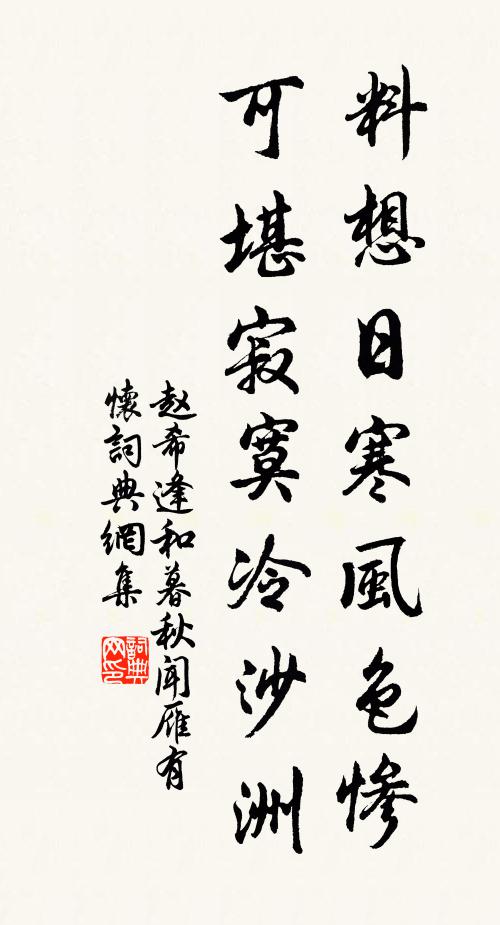 料想日寒風色慘
可堪寂寞冷沙洲
赵希逢和暮秋闻雁有
懷詞典網集
詞典
网印